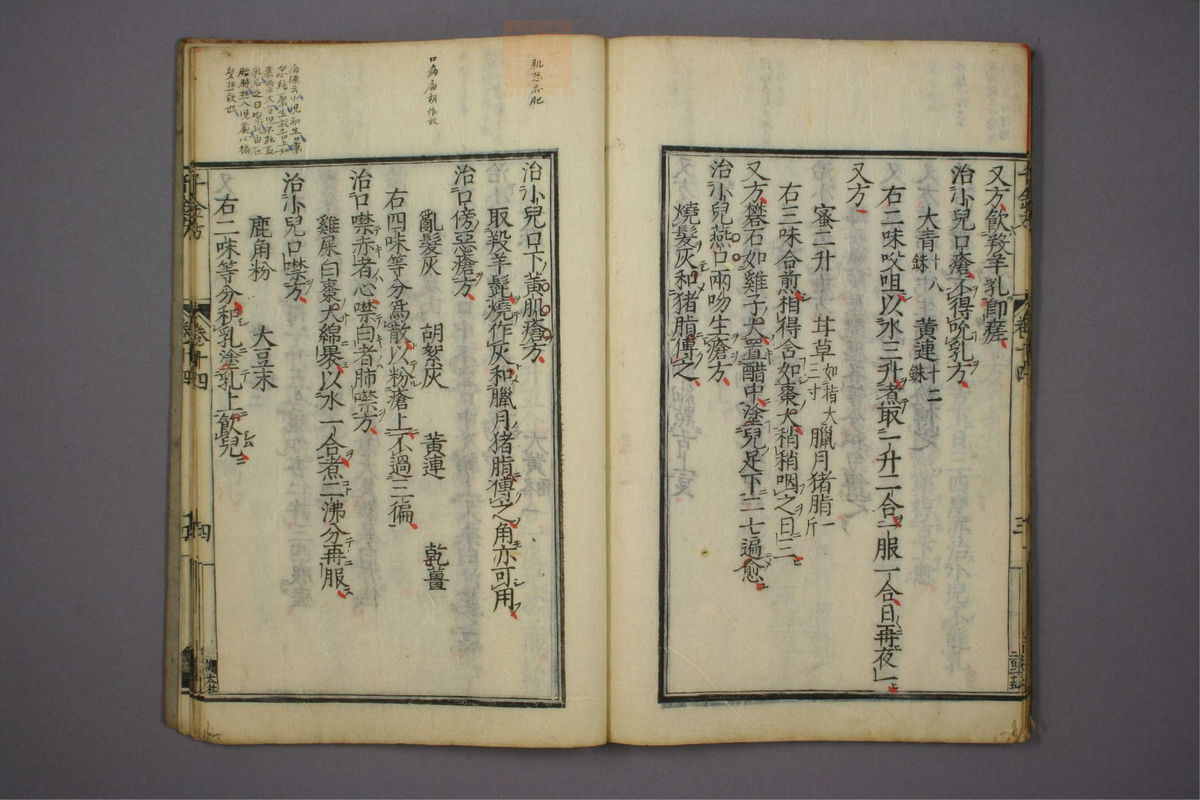 又方飲羖羊乳即瘥
治小兒口瘡不得吮乳方
大青十八銖 黃連十二銖
右二味㕮咀以水三升煮取一升二合一服一合日再夜一
又方
蜜二升 甘草如指大三寸 臘月猪脂一斤
右三味合煎相得含如棗大稍稍咽之日三
又方礬石如雞子大置醋中塗兒足下二七遍愈
治小兒燕口兩吻生瘡方
燒髮灰和猪脂傅之
三
治小兒口下黃肌瘡方
取羖羊髭燒作灰和臘月猪脂傅之角亦可用
治口傍惡瘡方
亂髮灰 胡絮灰 黃連 乾薑
右四味等分爲散以粉瘡上不過三徧
治口噤赤者心噤白者肺噤方
雞屎白棗大綿裹以水一合煮二沸分再服
治小兒口噤方
鹿角粉 大豆末
右二味等分和乳塗乳上飲兒
又
千金方 卷十四 四